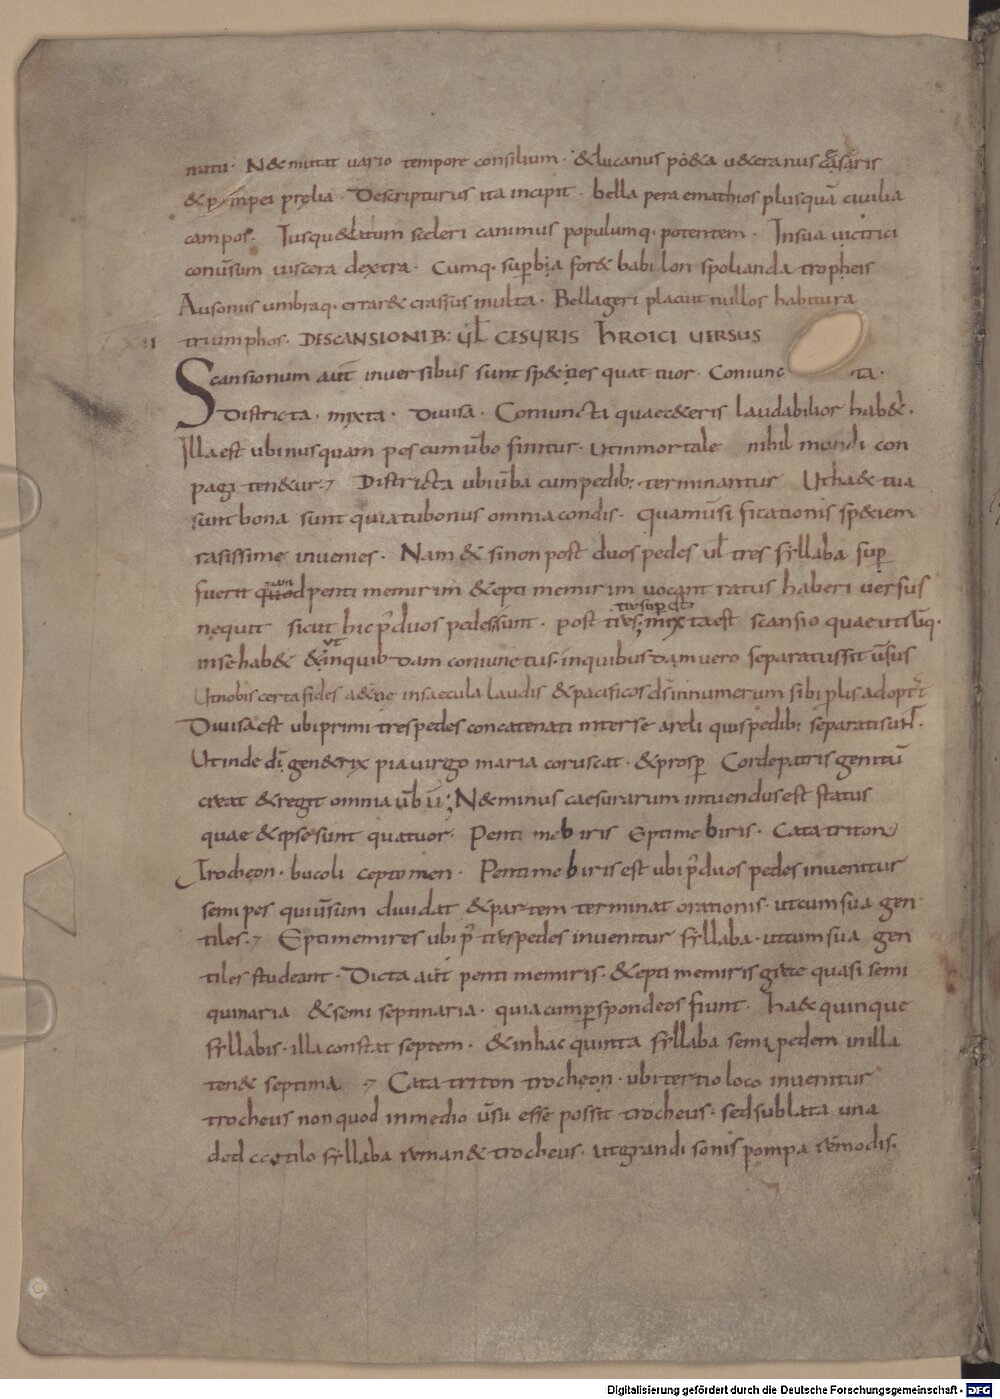 nutu· N& mutat uario tempore consilium· &lucanus po&a u&eranus cæsaris
& pompei prelia· Descripturus ita incipit· bella per aemathios plusquā ciuilia
campos· Iusqu&datum sceleri canimus populumq· potentem· Insua uictrici
conuersum uiscera dextra· Cumq· sup̄bia for& babilon spolianda tropheis
Ausonus umbraq· errar& crassus inulta· Bellageri placuit nullos habitura
II triumphos· DESCANSIONIB: ul̄ CESURIS hROICI UERSUS
Scansionum aut̄ inuersibus sunt sp&ties quattuor· Coniunc ta·
Districta· mixta· Diuisa· Coniuncta quaec&eris laudabilior hab&·
Illaest ubinusquam pes cum ūbo finitur· Utinmortale nihil mundi con
pagi ten&ur· Districta ubiūba cumpedib: terminantur Utha&tua
sunt bona sunt quiatubonus omnia condis· quamūsi ficationis sp&iem
rarissime inuenies· Nam & sinon post duos pedes ul̄ tres syllaba sup̄
fuerit quam penti memirim &epti memirim uocant ratus haberi uersus
nequit sicut hic p̄ duos pedes sunt· post tres; mixtaest scansio quae utrūq·
inse hab& ut &inquibusdam coniunctus· inquibusdam uero separatus sit ūsus
Utnobis certa fides a&erne insaecula laudis &pacificos d̄s innumerum sibi plis adopt&
Diuisa est ubi primi trespedes concatenati interse areliquis pedib: separatisunt·
Utinde dī gen&rix piauirgo maria coruscat· &prosp̄ Cordepatris genitū
creat &regit omnia ūb ū; N& minus caesurarum intuendusest status
quae &ipsesunt quatuor· Penti mebiris Eptimebiris· Cata triton
Trocheon· bucoli ceptomen· Pentimebiris est ubi p̄ duos pedes inuenitur
semipes quiūsum diuidat &partem terminat orationis· utcumsua gen
tiles· Eptimemires ubi p̄ trespedes inuenitur syllaba· utcumsua gen
tiles studeant· Dicta aut̄ penti memiris· &epti memiris grece quasi semi
quinaria &semi septinaria· quia cum p̄ spondeos fiunt· ha&c quinque
syllabis· illa constat septem· &inhac quinta syllaba semipedem inilla
ten& septima Cata triton trocheon· ubitertio loco inuenitur
trocheus non quod inmedio ūsu esse possit trocheus· sed sublata una
ded ccctilo syllaba reman& trocheus· utgrandi sonis pompa remodis·
Digitalisierung gefördert durch die Deutsche Forschungsgemeinschaft - DFG